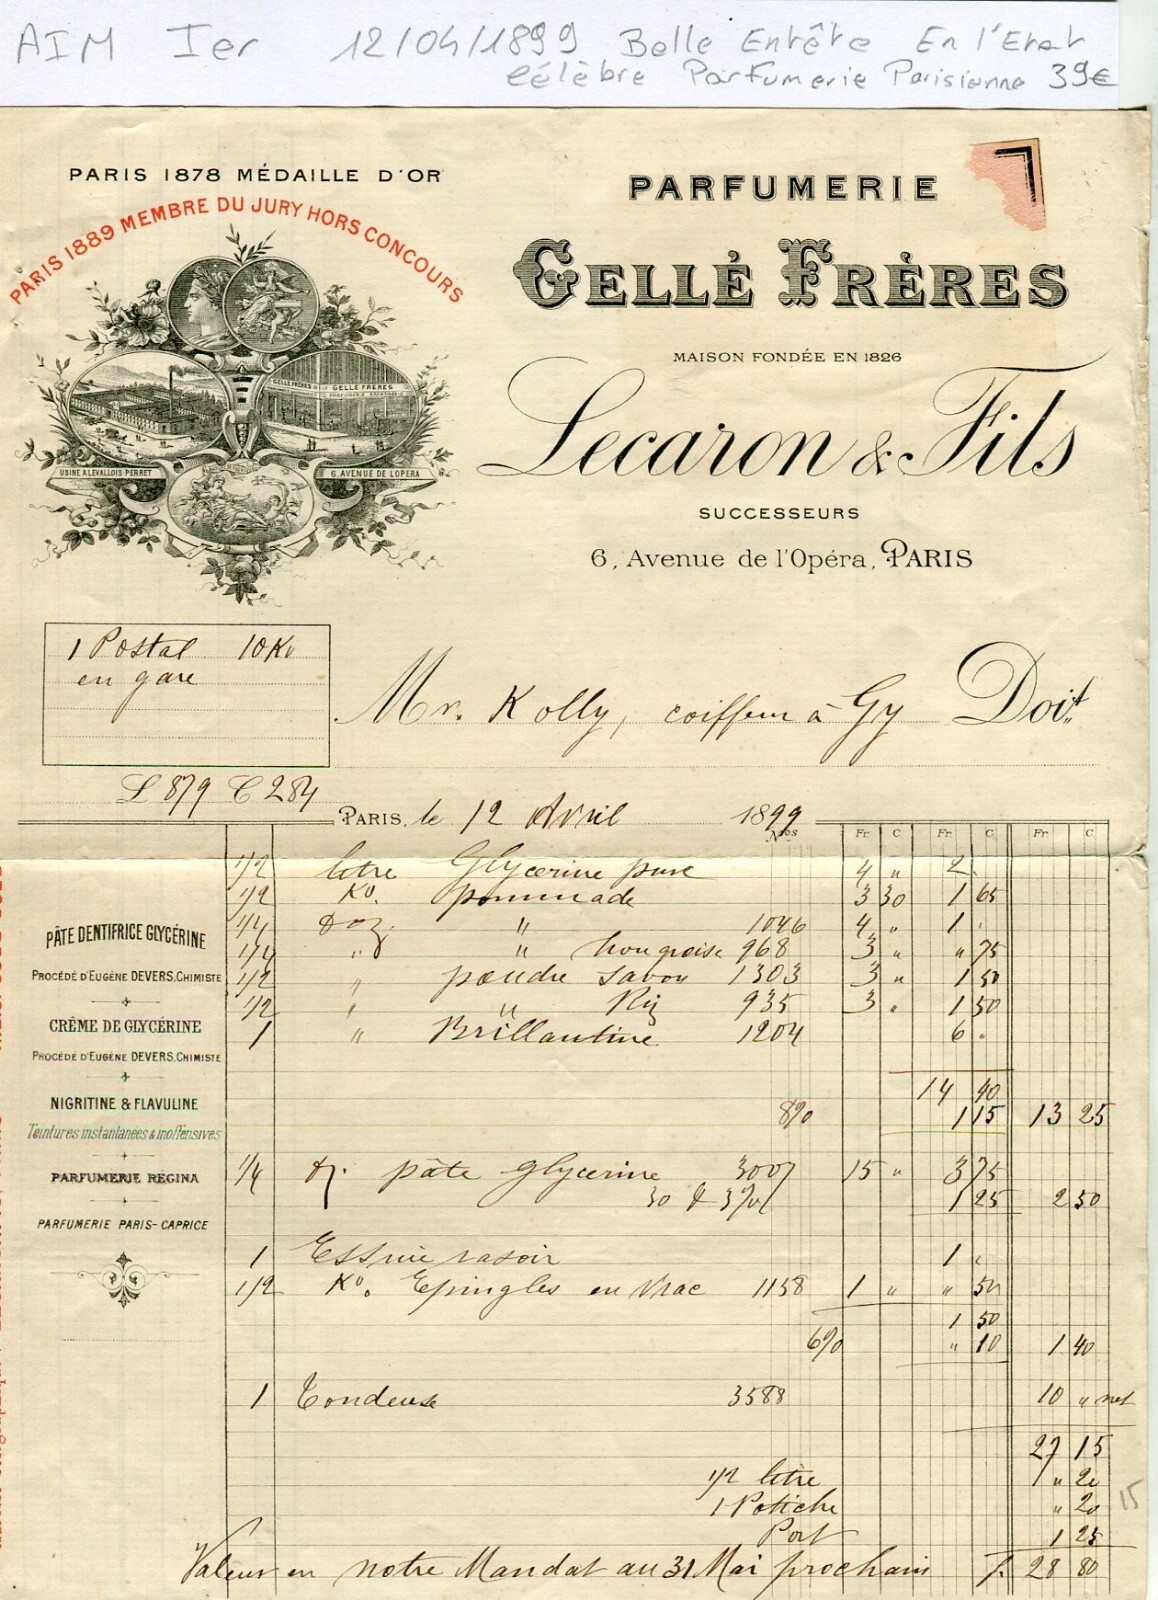 AIM Ier 12/04/1899 Belle Entête En l'Etat
célèbre Parfumerie Parisienne 39€
PARIS 1878 MÉDAILLE D'OR
PARIS 1889 MEMBRE DU JURY HORS CONCOURS
GELLÉ FRÈRES
USINE A LEVALLOIS-PERRET
6, AVENUE DE L'OPÉRA
PARFUMERIE
GELLÉ FRÈRES
MAISON FONDÉE EN 1826
Lecaron & Fils
SUCCESSEURS
6, Avenue de l'Opéra, PARIS
1 Postal 10 Ko
en gare
Mr. Kolly, coiffeur à Gy Doit
L 879 C 284
PARIS, le 12 Avril 1899
Nos Fr C. Fr. C. Fr C.
1/2 litre Glycerine pure 4 " 2 .
1/2 Ko. pommade 3 30 1 65
1/4 Doz " 1046 4 " 1 .
1/4 " " hongroise 968 3 " " 75
1/2 " poudre savon 1303 3 " 1 50
1/2 " " Riz 935 3 " 1 50
1 " Brillantine 1204 6 .
14 40
8% 1 15 13 25
1/4 dz. pâte glycerine 3007 15 " 3 75
30 & 3% 1 25 2 50
1 Essuie rasoir 1 .
1/2 Ko. Epingles en vrac 1158 1 " " 50
1 50
6% " 10 1 40
1 Tondeuse 3588 10 " net
27 15
1/2 litre " 20
1 Potiche " 20
Port 1 25
15
Valeur en notre Mandat au 31 Mai prochain F. 28 80
PÂTE DENTIFRICE GLYCÉRINE
PROCÉDÉ D'EUGÈNE DEVERS, CHIMISTE
CRÈME DE GLYCÉRINE
PROCÉDÉ D'EUGÈNE DEVERS, CHIMISTE
NIGRITINE & FLAVULINE
Teintures instantanées & inoffensives
PARFUMERIE REGINA
PARFUMERIE PARIS-CAPRICE